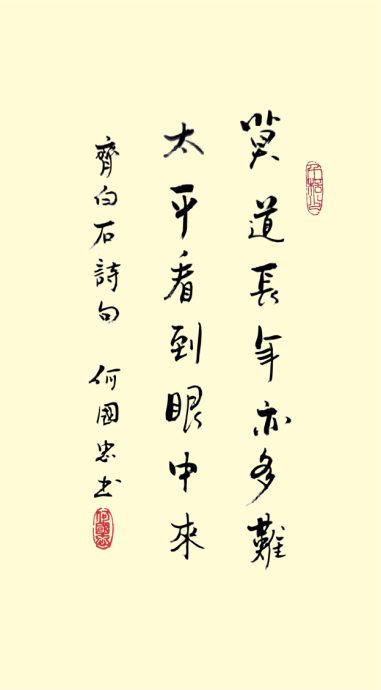 莫道長年亦多難
太平看到眼中來
齊白石詩句 何國忠書